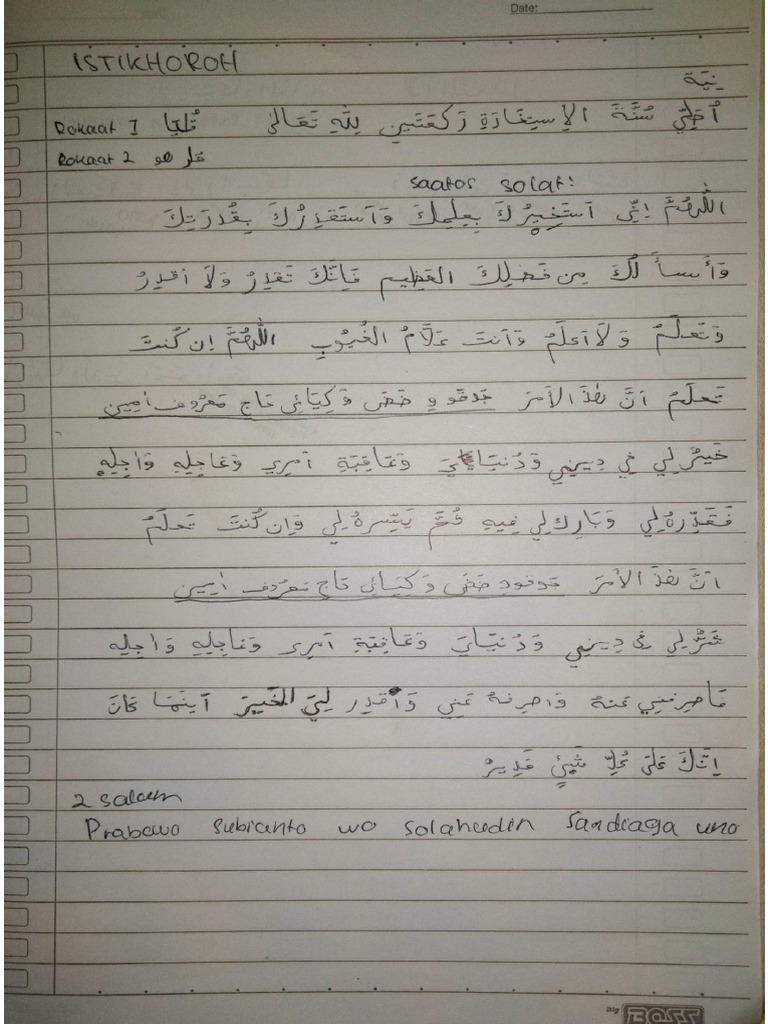 Date:
ISTIKHOROH
نِيَة
اُصَلِّي سُنَّةَ الاِستِخَارَةِ رَكعَتَينِ لِلّٰهِ تَعَالىٰ
Rokaat I
Rokaat 2 قل هو
saator solat:
اَللّٰهُمَّ اِنِّى اَستَخِيرُكَ بِعِلمِكَ وَاَستَقدِرُكَ بِقُدرَتِكَ
وَأَسأَلُكَ مِن فَضلِكَ العَظِيم فَاِنَّكَ تَقدِرُ وَلَا اَقدِرُ
وَتَعلَمُ وَلَا اَعلَمُ وَاَنتَ عَلَّامُ الغُيُوبِ اَللّٰهُمَّ اِن كُنتَ
تَعلَمُ اَنَّ هٰذَا الأَمرَ وَكِيَائِى حَاج مَعرُوف اٰمِين
خَيرٌلِي فِي دِينِي وَدُنيَايَ وَعَاقِبَةِ اَمرِي وَعَاجِلِهِ وَاٰجِلِهِ
فَقَدِّرهُ لِي وَبَارِك لِي فِيهِ ثُمَّ يَسِّرهُ لِي وَاِن كُنتَ تَعلَمُ
اَنَّ هٰذَا الأَمرَ وَكِيَائِى حَاج مَعرُوف اٰمِين
شَرٌّ لِي فِى دِينِي وَدُنيَايَ وَعَاقِبَةِ اَمرِى وَعَاجِلِهِ وَاٰجِلِهِ
فَاصرِفنِي عَنهُ وَاصرِفهُ عَنِّي وَاقدِر لِيَ الخَيرَ اَينَمَا كَانَ
اِنَّكَ عَلىٰ كُلِّ شَيئٍ قَدِيرُ
2 salam
Prabowo subianto wo solahudin Sandiaga uno
BOSS